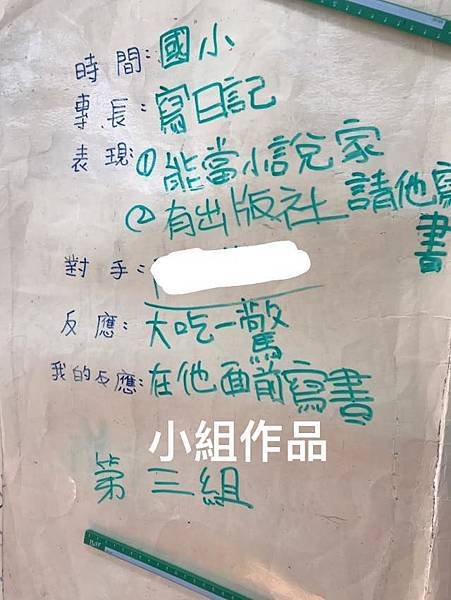 時間：國小
專長：寫日記
表現：①能當小說家
②有出版社請他寫書
對手：
反應：大吃一驚
我的反應：在他面前寫書
小組作品
第三組